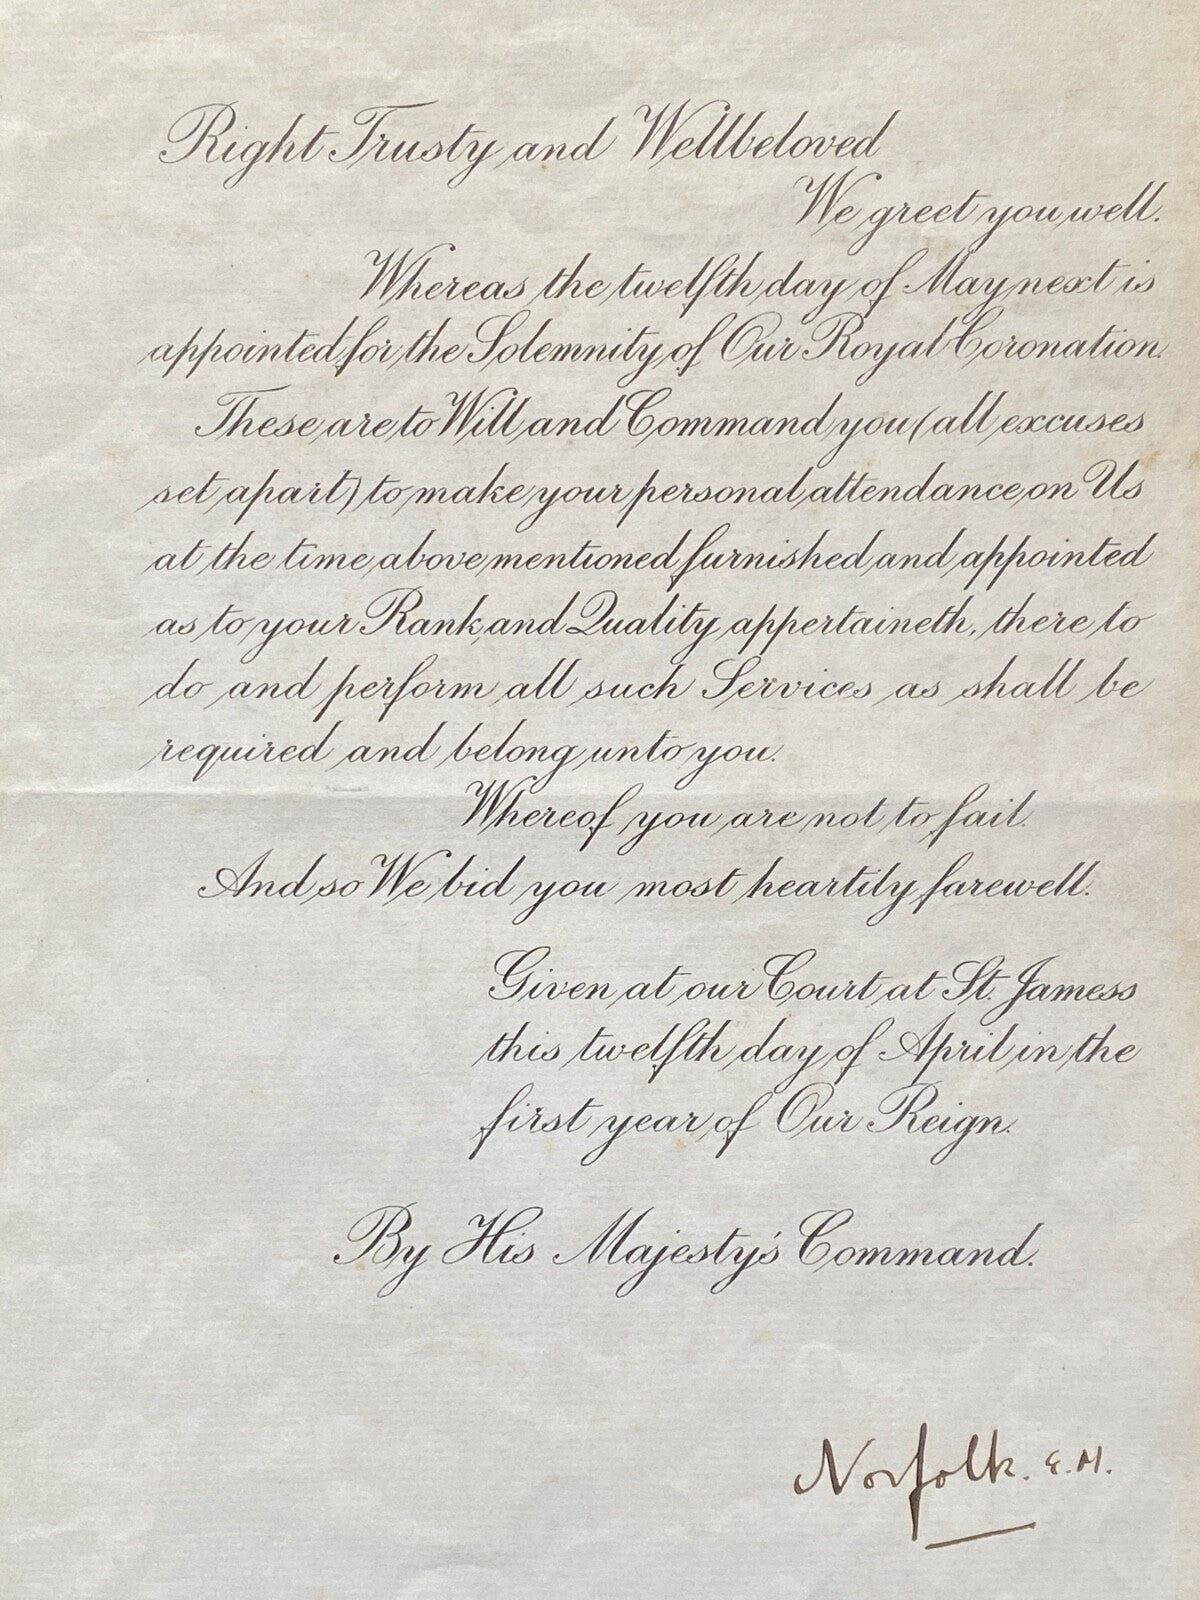 Right Trusty and Wellbeloved
We greet you well.
Whereas the twelfth day of May next is
appointed for the Solemnity of Our Royal Coronation.
These are to Will and Command you (all excuses
set apart) to make your personal attendance on Us
at the time above mentioned furnished and appointed
as to your Rank and Quality appertaineth, there to
do and perform all such Services as shall be
required and belong unto you.
Whereof you are not to fail.
And so We bid you most heartily farewell.
Given at our Court at St. Jamess
this twelfth day of April in the
first year of Our Reign.
By His Majesty's Command.
Norfolk. E.M.